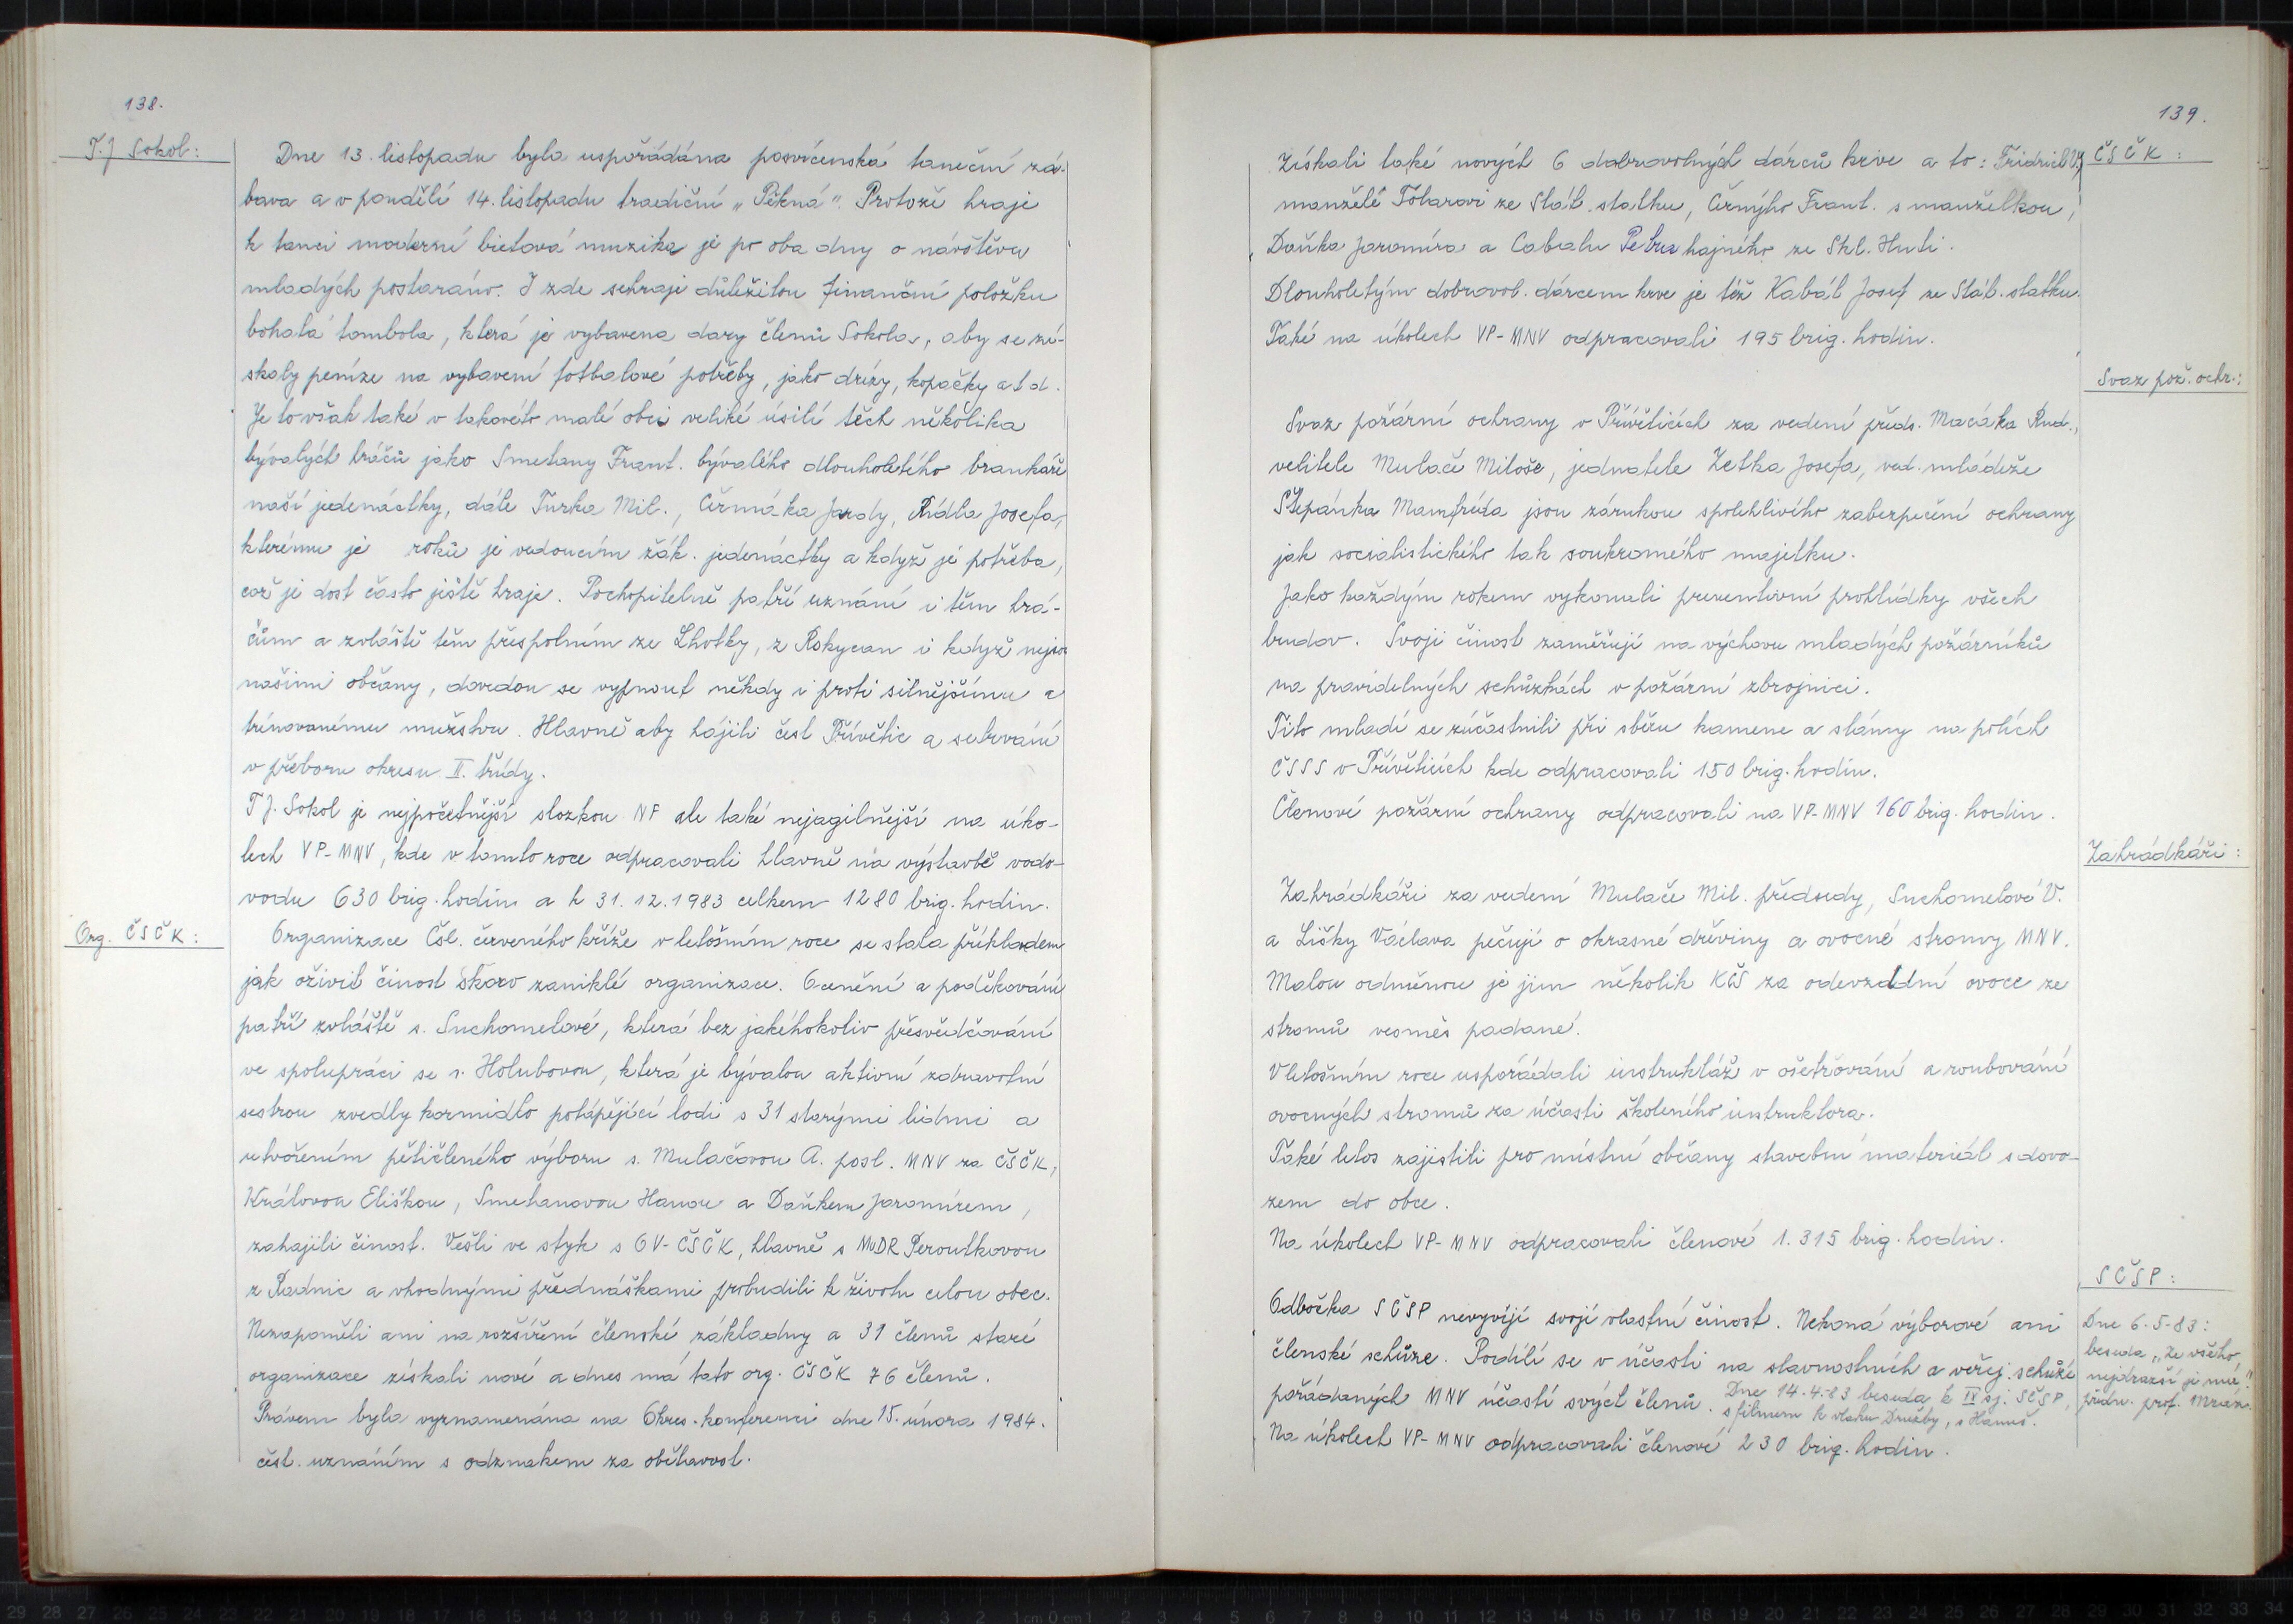 138.
T.J Sokol:
Dne 13. listopadu byla uspořádána posvícenská taneční zá-
bava a v pondělí 14. listopadu tradiční „Pěkná". Protože hraje
k tanci moderní bietová muzika je po oba dny o návštěvu
mladých postaráno. I zde sehraje důležitou finanční položku
bohatá tombola, která je vybavena dary členů Sokola, aby se zí-
skaly peníze na vybavení fotbalové potřeby, jako drézy, kopačky a t d.
Je to však také v takovéto malé obci veliké úsilí těch několika
bývalých hráčů jako Smetany Frant. bývalého dlouholetého brankáře
naší jedenáctky, dále Turka Mil., Čermáka Jardy, Rídla Josefa,
kterému je roků je vedoucím žák. jedenáctky a když je potřeba,
což je dost často ještě hraje. Pochopitelně patří uznání i těm hrá-
čům a zvláště těm přespolním ze Lhotky, z Rokycan i když nejsou
našimi občany, dovedou se vypnout někdy i proti silnějšímu a
trénovanému mužstvu. Hlavně aby hájili čest Přívětic a setrvání
v přeboru okresu II. třídy.
T J. Sokol je nejpočetnější složkou NF ale také nejagilnější na úko-
lech VP-MNV, kde v tomto roce odpracovali hlavně na výstavbě vodo-
vodu 630 brig. hodin a k 31. 12. 1983 celkem 1280 brig. hodin.
Org. ČSČK:
Organizace Čsl. červeného kříže v letošním roce se stala příkladem
jak oživit činost skoro zaniklé organizace. Ocenění a poděkování
patří zvláště s. Suchomelové, která bez jakéhokoliv přesvědčování
ve spolupráci se s. Holubovou, která je bývalou aktivní zdravotní
sestrou zvedly kormidlo potápějící lodi s 31 starými lidmi a
utvořením pětičleného výboru s. Mulačovou A. posl. MNV za ČSČK,
Královou Eliškou, Smetanovou Hanou a Daňkem Jaromírem,
zahájili činost. Vešli ve styk s OV-ČSČK, hlavně s MUDR Peroutkovou
z Radnic a vhodnými přednáškami probudili k životu celou obec.
Nezapoměli ani na rozšíření členské základny a 31 členů staré
organizace získali nové a dnes má tato org. ČSČK 76 členů.
Právem byla vyznamenána na Okres. konferenci dne 15. února 1984.
čest. uznáním s odznakem za obětavost.
139.
ČSČK:
Získali také nových 6 dobrovolných dárců krve a to: Fridrich
manželé Tolarovi ze Stát. statku, Černýho Frant. s manželkou,
Daňka Jaromíra a Cabalu Petra hajného ze Skl. Huti.
Dlouholetým dobrovol. dárcem krve je též Kabát Josef ze Stát. statku.
Také na úkolech VP-MNV odpracovali 195 brig. hodin.
Svaz pož. ochr.:
Svaz požární ochrany v Přívěticích za vedení předs. Macáka Rud.,
velitele Mulače Miloše, jednatele Zetka Josefa, ved. mládeže
Štěpánka Mamfréda jsou zárukou spolehlivého zabezpečení ochrany
jak socialistického tak soukromého majetku.
Jako každým rokem vykonali preventivní prohlídky všech
budov. Svoji činost zaměřují na výchovu mladých požárníků
na pravidelných schůzkách v požární zbrojnici.
Tito mladí se zúčastnili při sběru kamene a slámy na polích
ČSSS v Přívěticích kde odpracovali 150 brig. hodin.
Členové požární ochrany odpracovali na VP-MNV 160 brig. hodin.
Zahrádkáři:
Zahrádkáři za vedení Mulače Mil. předsedy, Suchomelové V.
a Lišky Václava pečují o okrasné dřeviny a ovocné stromy MNV.
Malou odměnou je jim několik KČS za odevzdání ovoce ze
stromů vesměs padané.
V letošním roce uspořádali instruktáž v ošetřování a roubování
ovocných stromů za účasti školeného instruktora.
Také letos zajistili pro místní občany stavební materiál s dovo-
zem do obce.
Na úkolech VP-MNV odpracovali členové 1.315 brig. hodin.
SČSP:
Odbočka SČSP nevyvíjí svojí vlastní činost. Nekoná výborové ani
členské schůze. Podílí se v účasti na slavnostních a veřej. schůzí
pořádaných MNV účastí svých členů. Dne 14.4.83 beseda k IX sj. SČSP,
s filmem k vlaku Družby, s Hanuš.
Na úkolech VP-MNV odpracovali členové 230 brig. hodin.
Dne 6.5-83:
beseda „Ze všeho
nejdražší je mír"
předn. prof. Mráz.